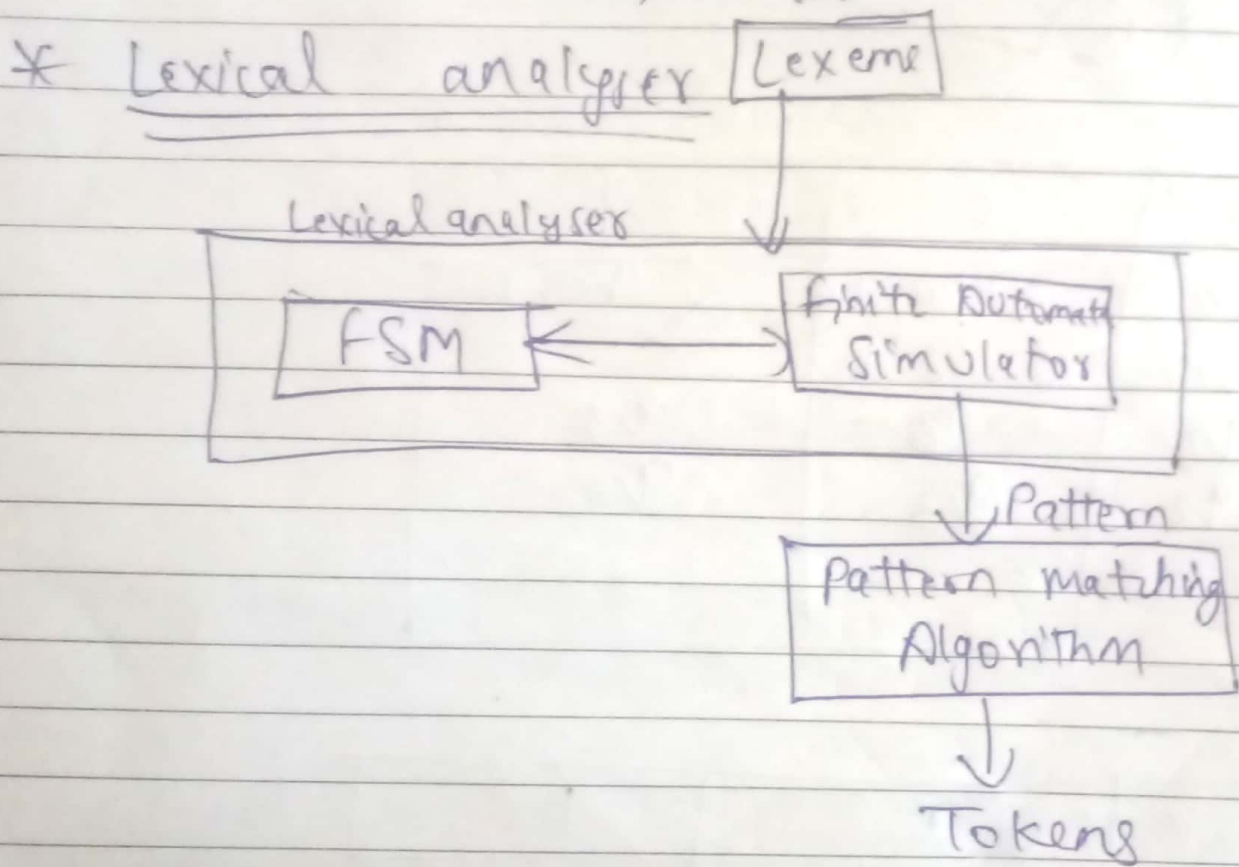 * Lexical analyser
Lexeme
Lexical analyser
FSM
Finite Automata
Simulator
Pattern
Pattern matching
Algorithm
Tokens